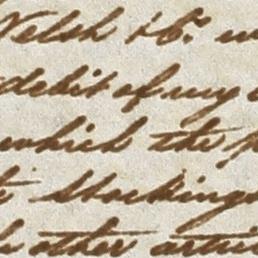 Welsh & Co.
debit of my
which the
stockings
other